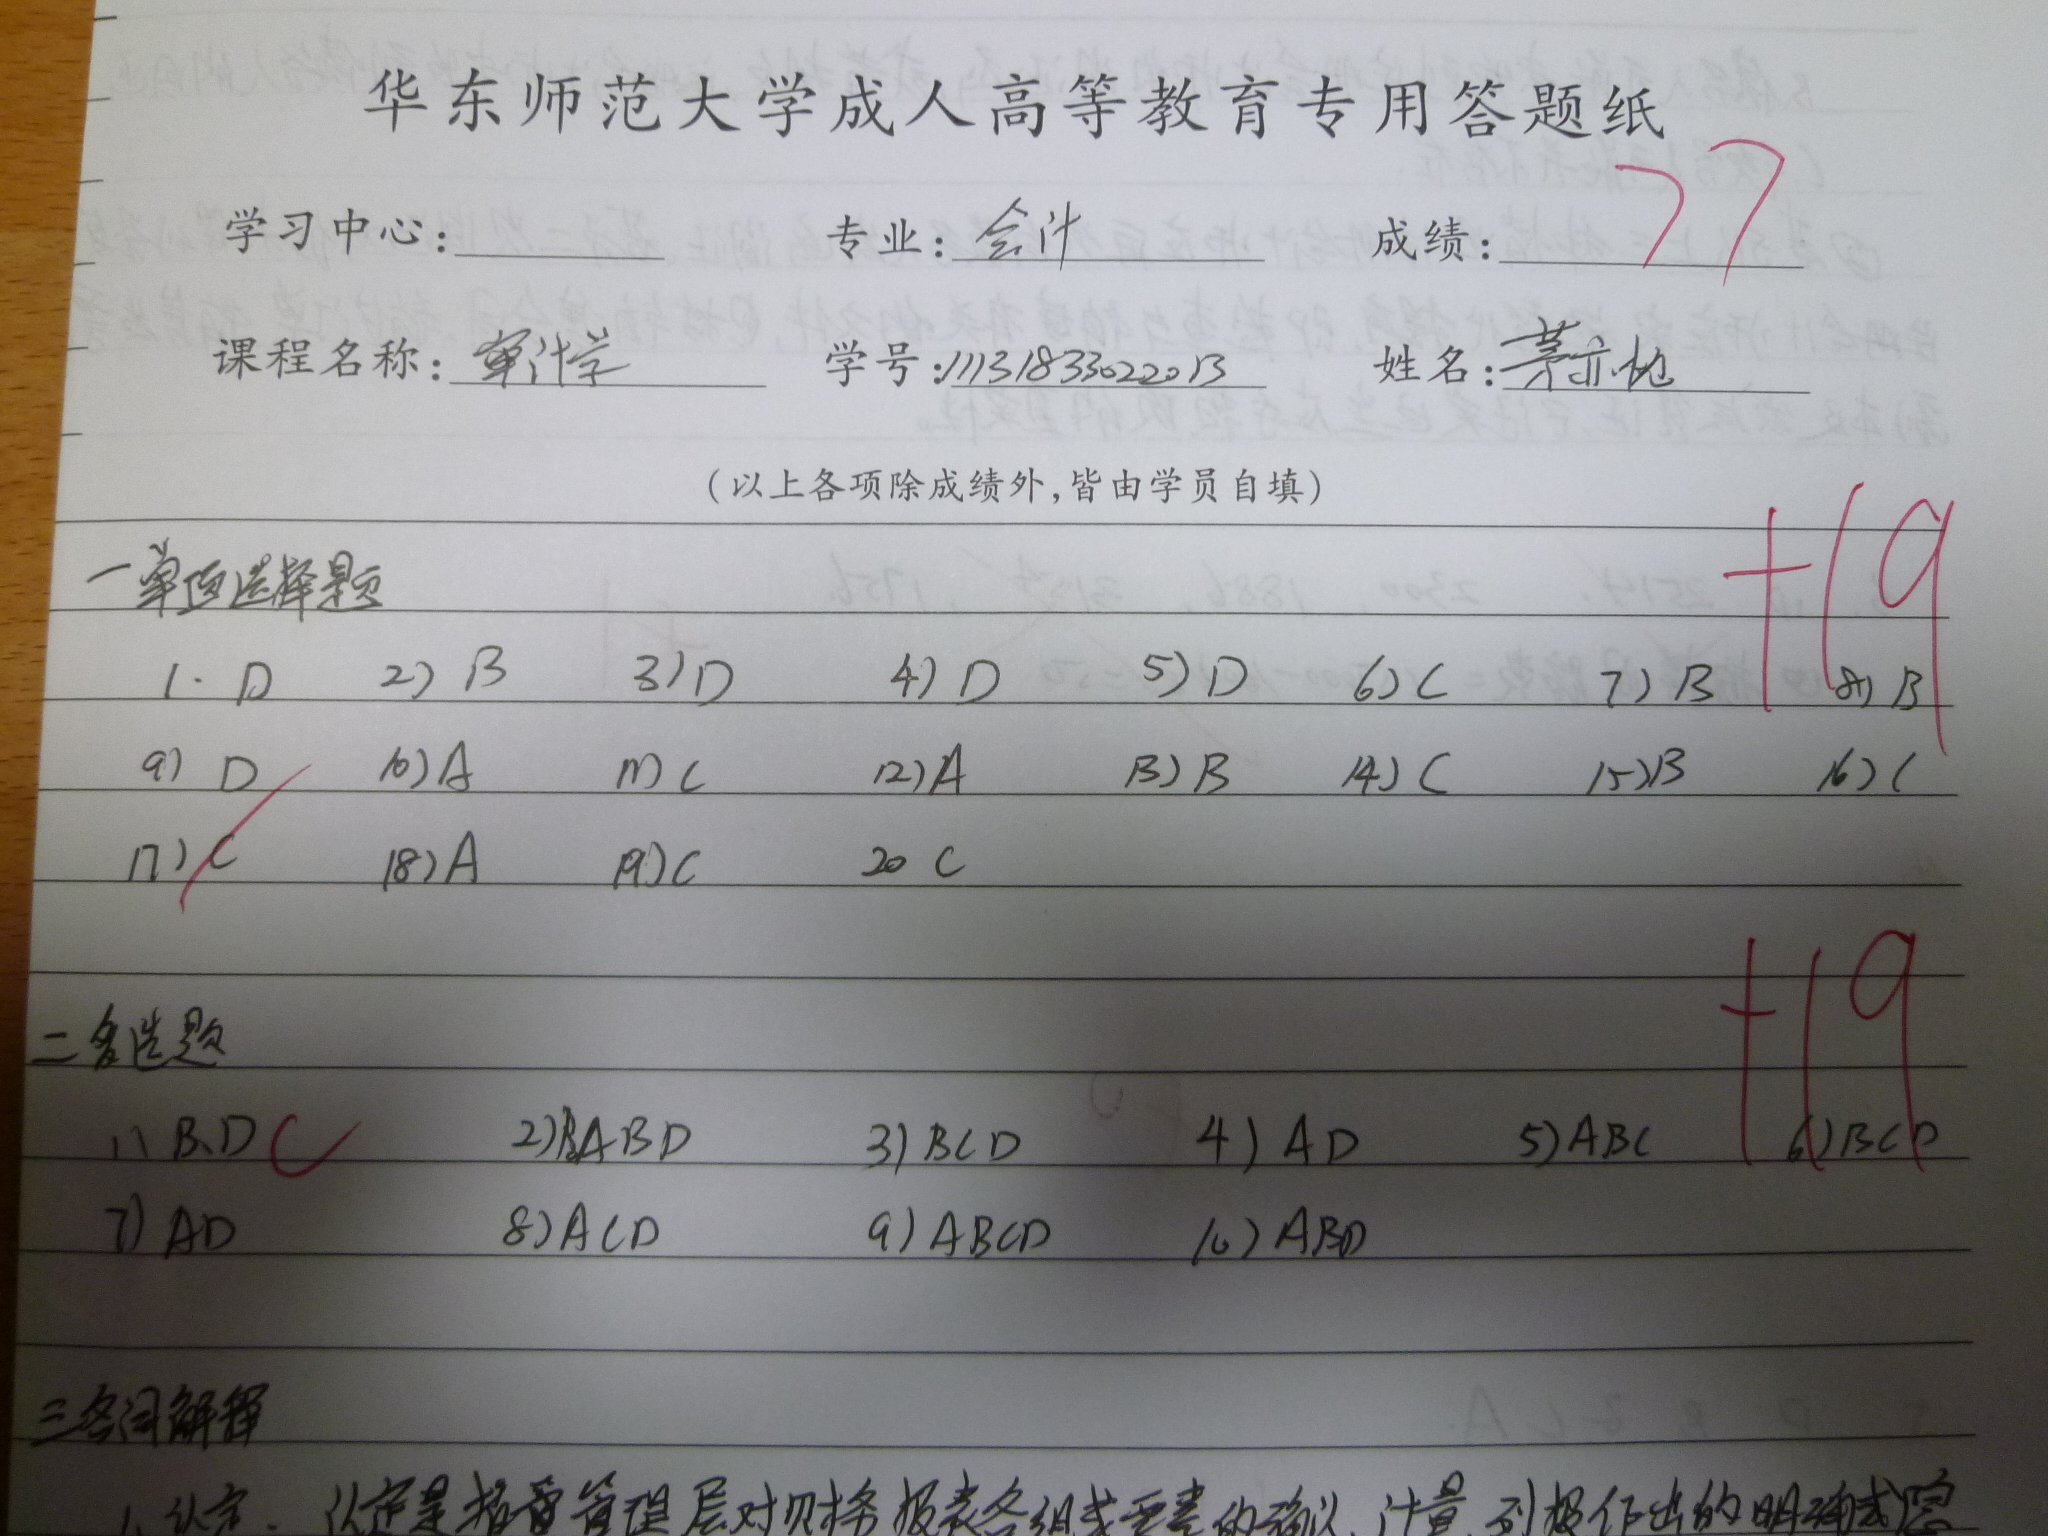 华东师范大学成人高等教育专用答题纸
学习中心: 专业: 会计 成绩: 77
课程名称: 审计学 学号: 1113183302201B 姓名: 茅亦
(以上各项除成绩外,皆由学员自填)
+19
一单项选择题
1. D 2) B 3) D 4) D 5) D 6) C 7) B 8) B
9) D 10) A 11) C 12) A 13) B 14) C 15) B 16) C
17) C 18) A 19) C 20 C
+19
二多选题
1) B.D C 2) ABD 3) BCD 4) AD 5) ABC 6) BCD
7) AD 8) ACD 9) ABCD 10) ABD
三名词解释
1. 认定: 认定是指管理层对财务报表各组成要素的确认、计量、列报作出的明确或